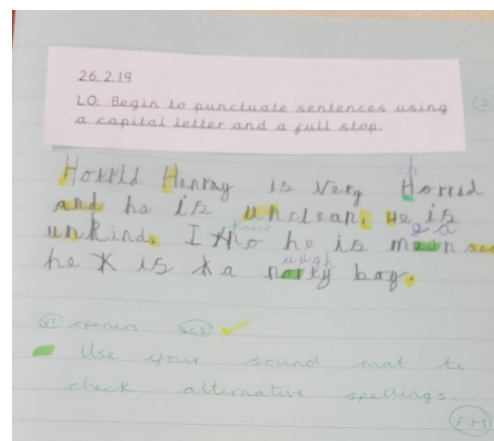 26.2.19
LO: Begin to punctuate sentences using
a capital letter and a full stop.
h
Horrid Henray is Very Horrid
and he is unclean. He is
know ea
unKind. I no he is meen
augh
he is a norty boy.
SF openers. SCS ✓
Use your sound mat to
check alternative spellings.